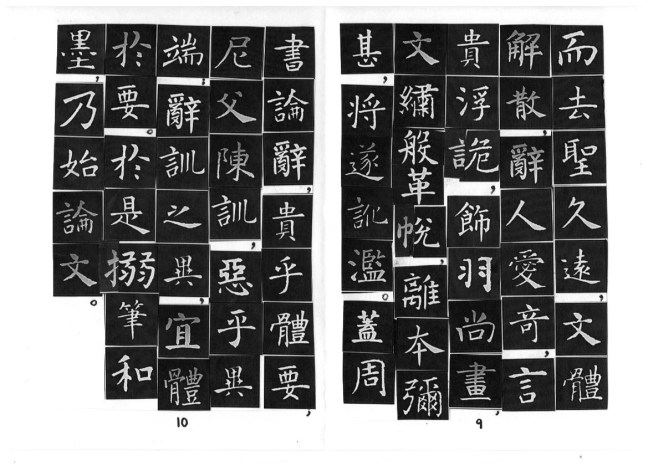 而去聖久遠，文體
解散，辭人愛奇，言
貴浮詭，飾羽尚畫，
文繡鞶帨，離本彌
甚，将遂訛濫。蓋周
9
書論辭，貴乎體要，
尼父陳訓，惡乎異
端；辭訓之異，宜體
於要。於是搦筆和
墨，乃始論文。
10